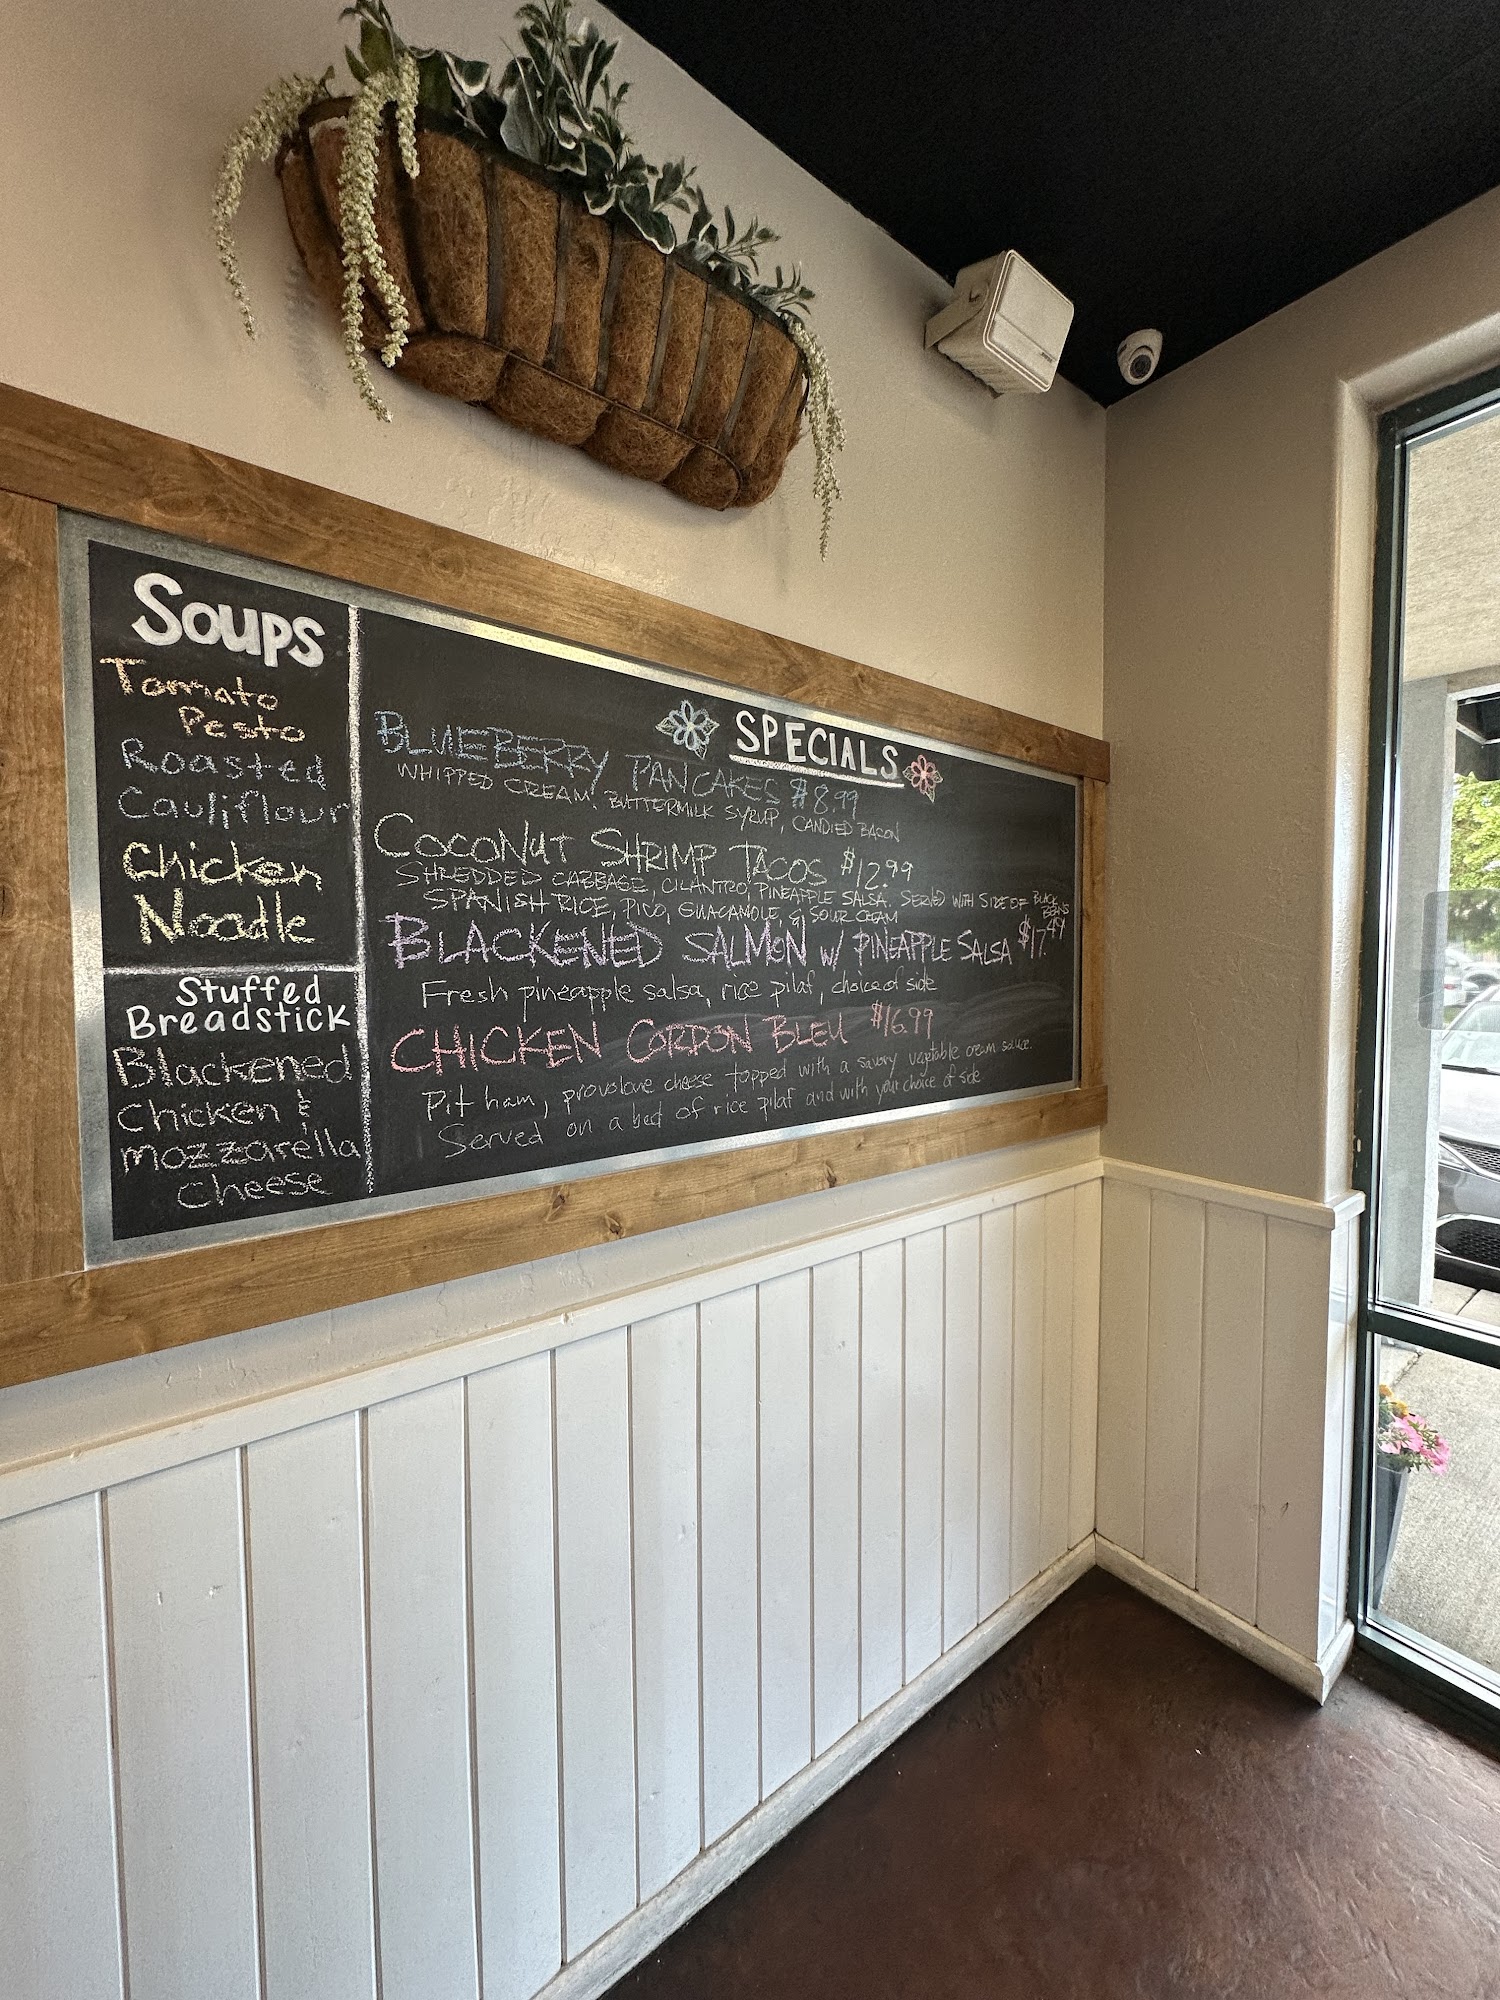 Soups
Tomato
Pesto
Roasted
Cauliflour
Chicken
Noodle
Stuffed
Breadstick
Blackened
Chicken &
mozzarella
Cheese
SPECIALS
BLUEBERRY PANCAKES $8.99
WHIPPED CREAM, BUTTERMILK SYRUP, CANDIED BACON
COCONUT SHRIMP TACOS $12.99
SHREDDED CABBAGE, CILANTRO, PINEAPPLE SALSA. SERVED WITH SIDE OF BLACK BEANS
SPANISH RICE, PICO, GUACAMOLE, & SOUR CREAM
BLACKENED SALMON W/ PINEAPPLE SALSA $17.49
Fresh pineapple salsa, rice pilaf, choice of side
CHICKEN CORDON BLEU $16.99
Pit ham, provolone cheese topped with a savory vegetable cream sauce.
Served on a bed of rice pilaf and with your choice of side